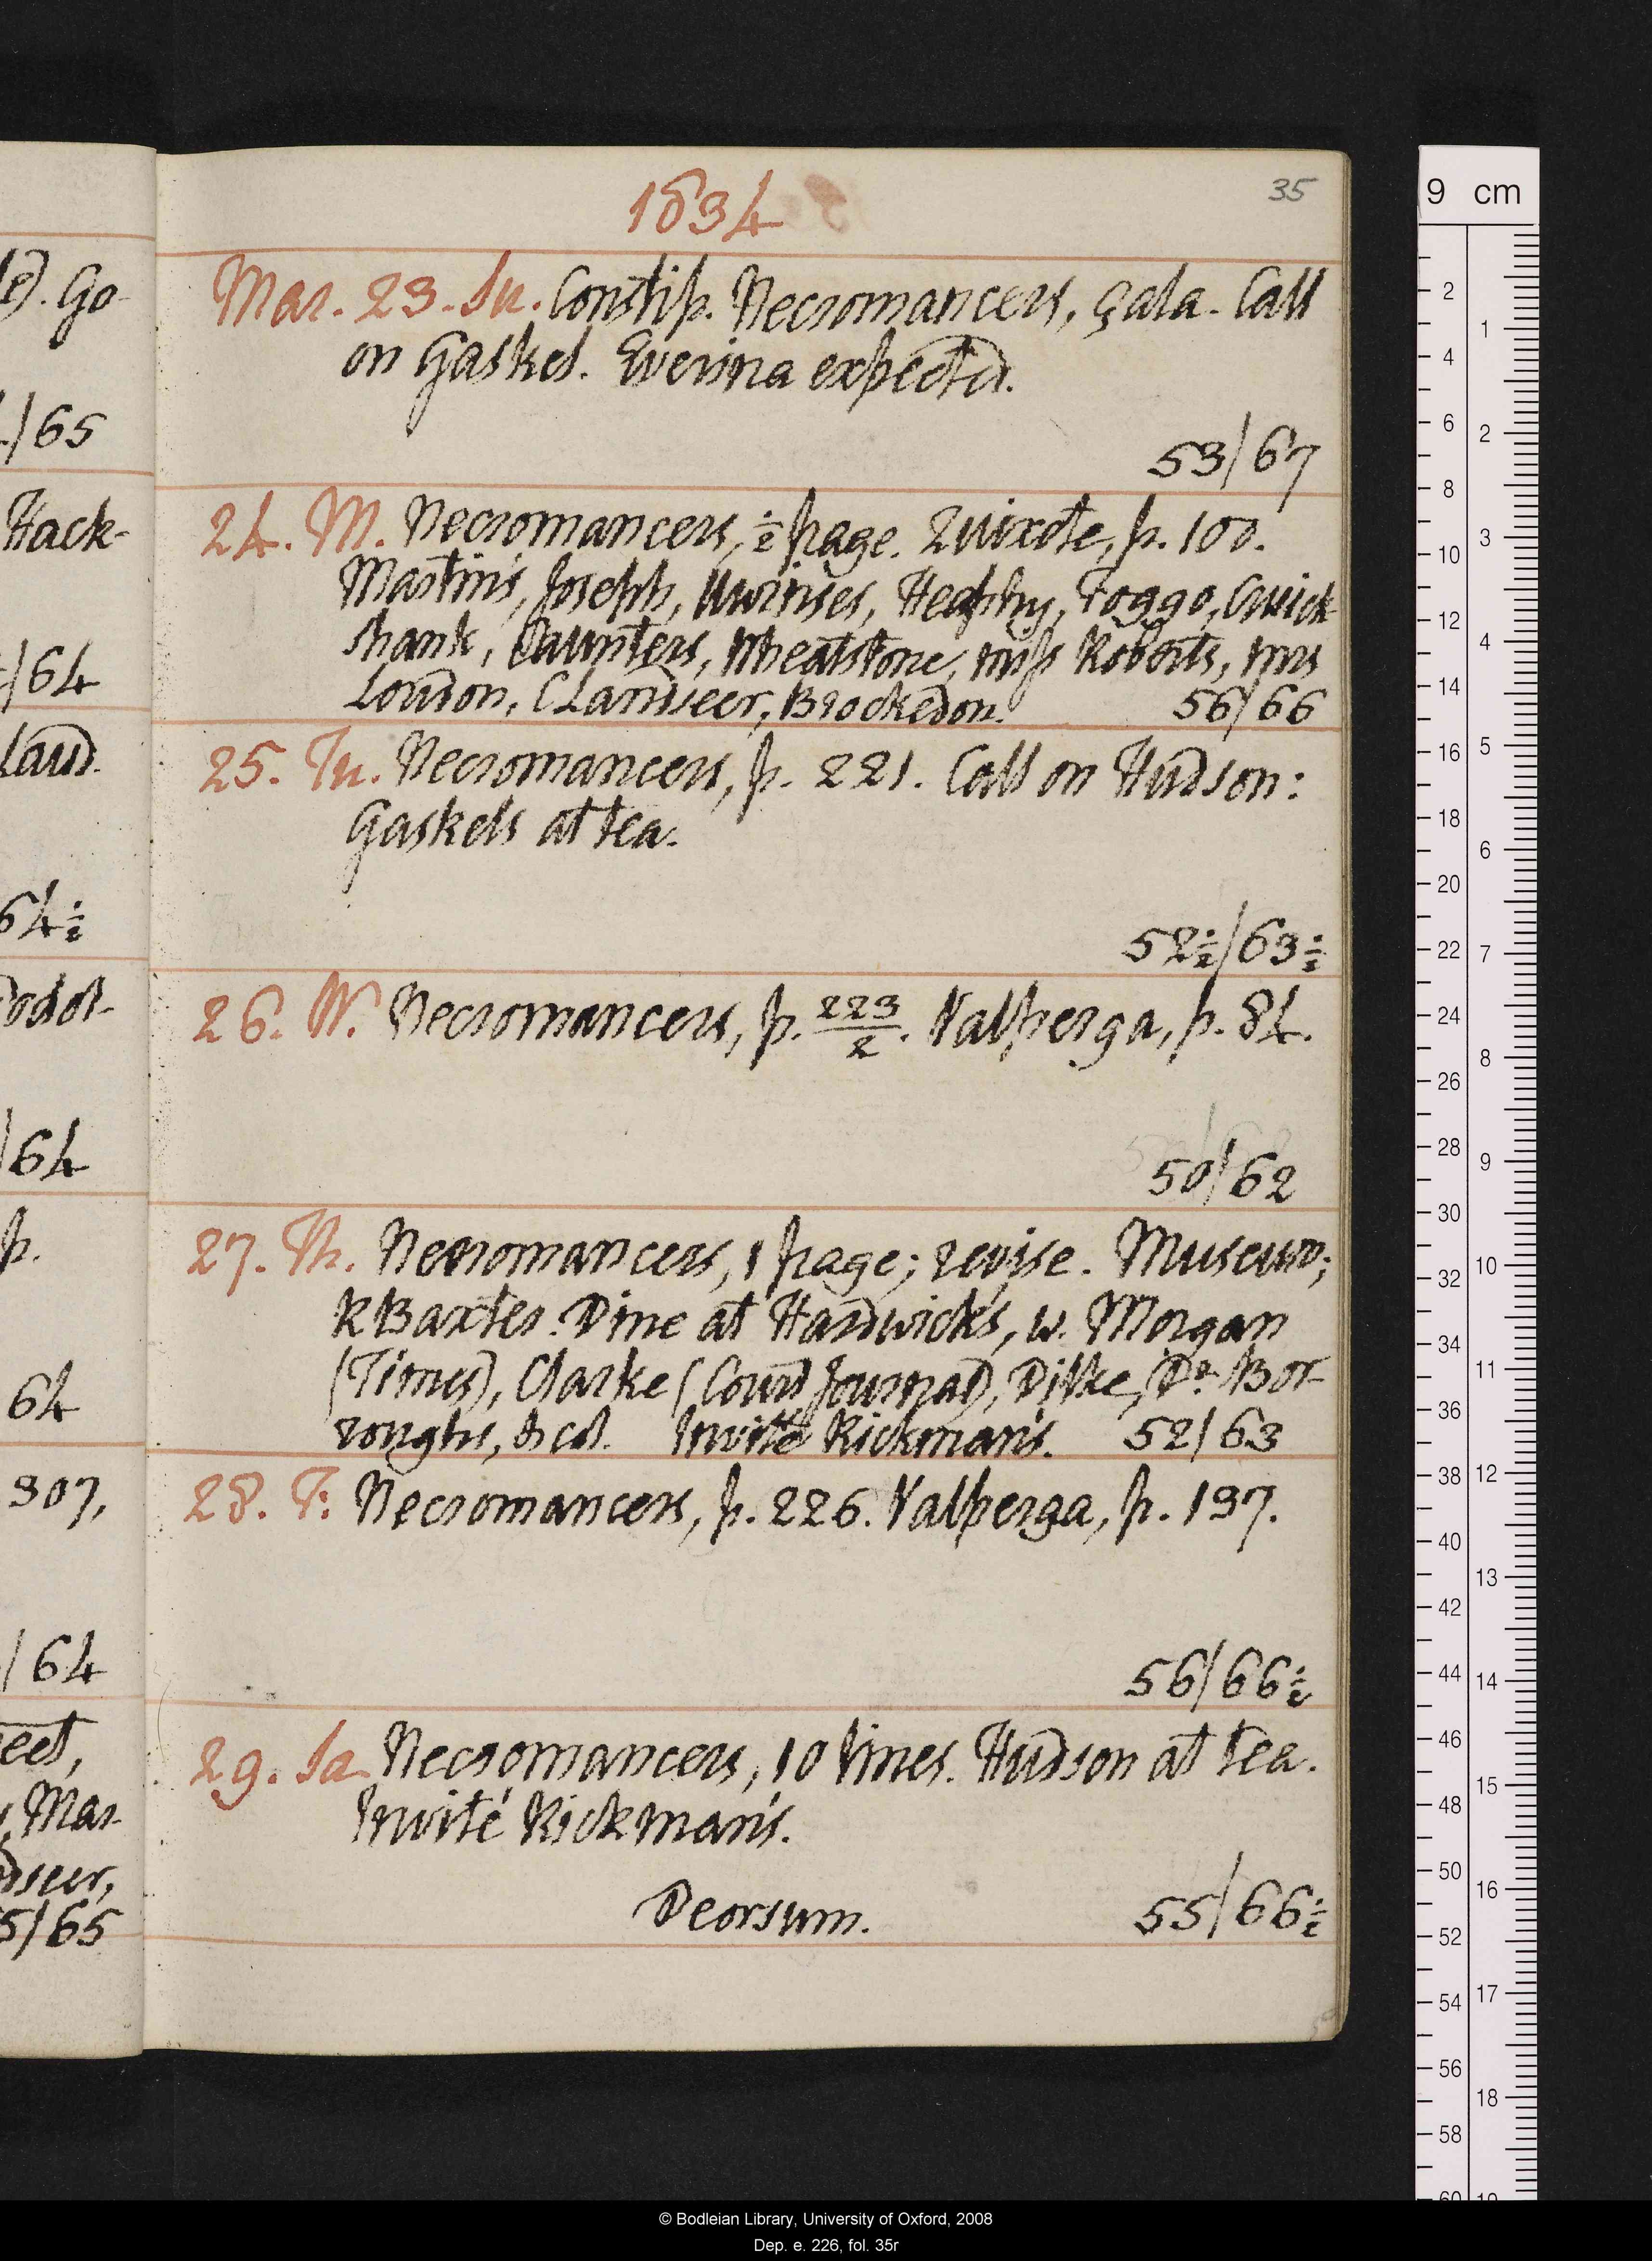 1834
35
Mar. 23. Su. Constip. Necromancers, çala. Call
on Gaskel. Everina expected.
53/67
24. M. Necromancers, ½ page. Quixote, p. 100.
Martin's, Joseph, Uwinses, Heaphy, Foggo, Cruick
shank, Daunters, Wheatstone, miss Roberts, mrs
Loudon, C Landseer, Brockedon. 56/66
25. Tu. Necromancers, p. 221. Call on Hudson:
Gaskels at tea.
52½/63½
26. W. Necromancers, p. 223/2. Valperga, p. 84.
50/62
27. Th. Necromancers, 1 page; revise. Museum;
R Baxter. Dine at Hardwick's, w. Morgan
(Times), Clarke (Court Journal), Dilke, Dr. Bor-
roughs, & cet. Invité Rickman's. 52/63
28. F. Necromancers, p. 226. Valperga, p. 197.
56/66½
29. Sa. Necromancers, 10 lines. Hudson at tea.
Invité Rickman's.
Deorsum. 55/66½
le). Go-
/65
Hack-
/64
Laud.
64½
/64
p.
64
307,
/64
eet,
, Mar-
dseer,
5/65
9 cm
© Bodleian Library, University of Oxford, 2008
Dep. e. 226, fol. 35r